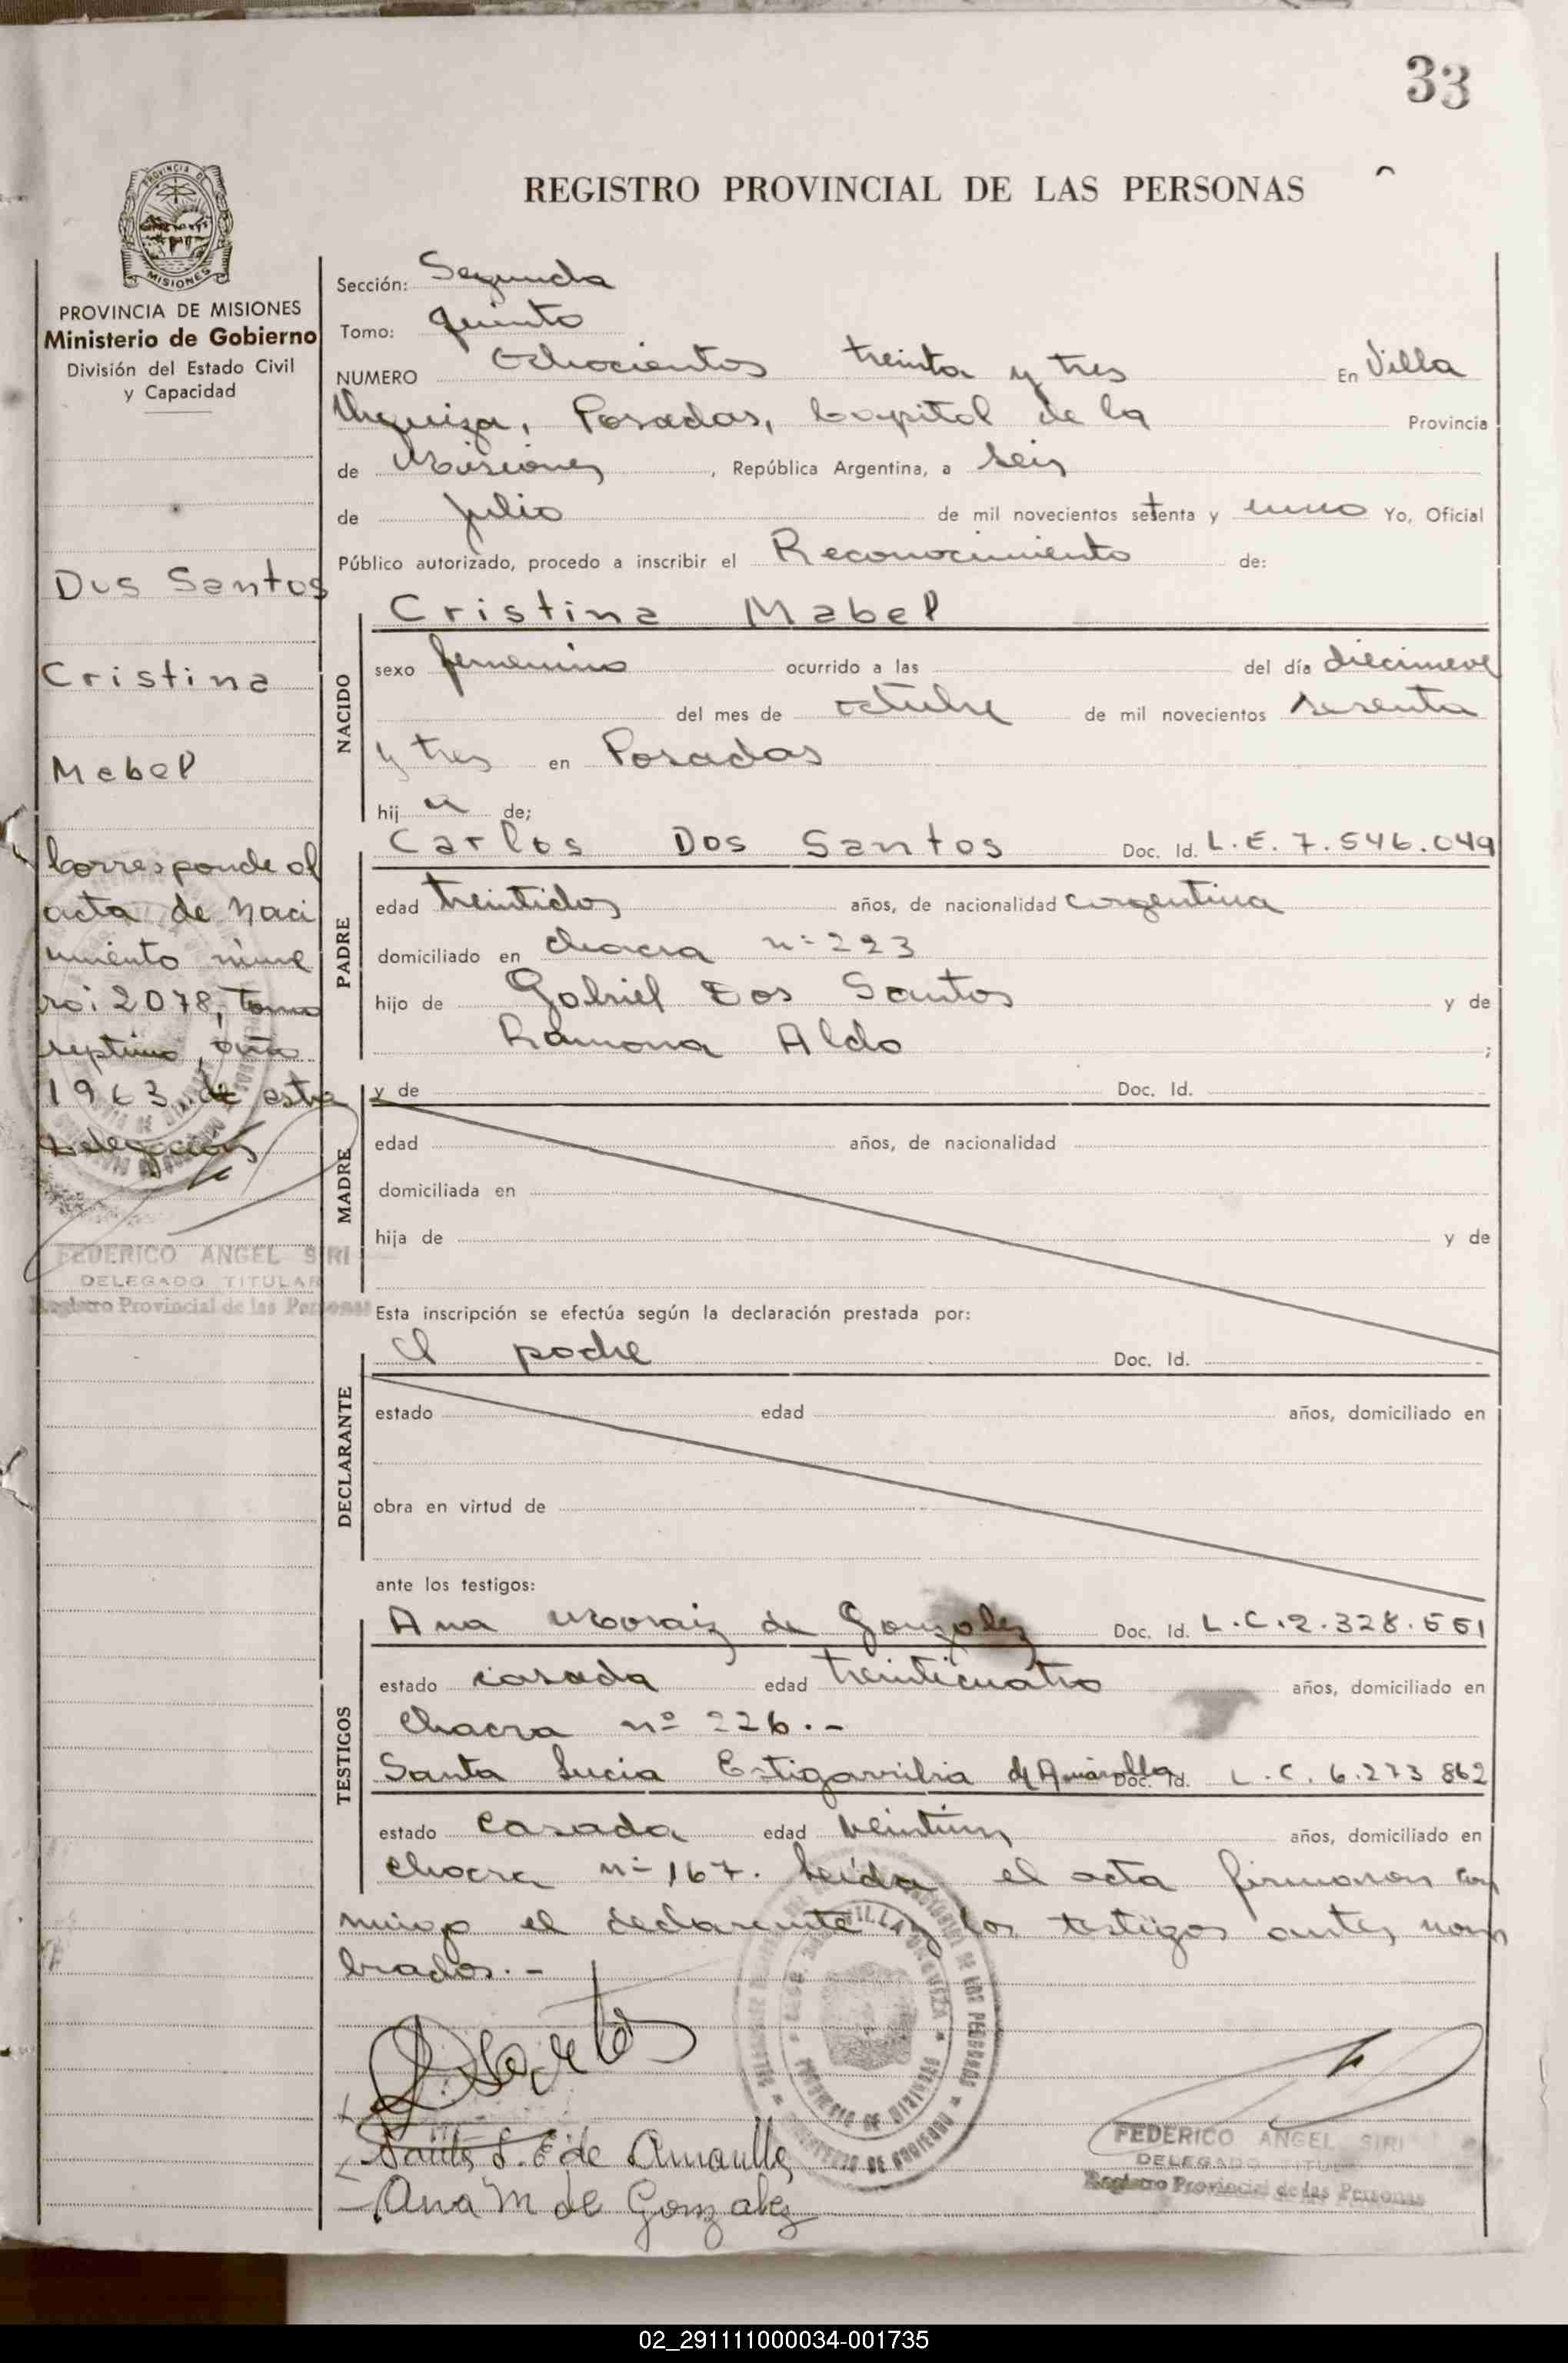 33
REGISTRO PROVINCIAL DE LAS PERSONAS
PROVINCIA DE
MISIONES
PROVINCIA DE MISIONES
Ministerio de Gobierno
División del Estado Civil
y Capacidad
Dos Santos
Cristina
Mabel
Corresponde al
acta de naci
miento núme
ro: 2078, tomo
septimo, año
1963, de esta
Delegación
FEDERICO ANGEL SIRI
DELEGADO TITULAR
Registro Provincial de las Personas
Sección: Segunda
Tomo: quinto
NUMERO Ochocientos treinta y tres En Villa
Urquiza, Posadas, Capital de la Provincia
de Misiones, República Argentina, a seis
de julio de mil novecientos setenta y uno Yo, Oficial
Público autorizado, procedo a inscribir el Reconocimiento de:
NACIDO
Cristina Mabel
sexo femenino ocurrido a las del día diecinueve
del mes de octubre de mil novecientos sesenta
y tres en Posadas
hij a de;
PADRE
Carlos Dos Santos Doc. Id. L.E. 7.546.049
edad treintidos años, de nacionalidad argentina
domiciliado en chacra n= 223
hijo de Gabriel Dos Santos y de
Ramona Aldo ;
MADRE
y de Doc. Id.
edad años, de nacionalidad
domiciliada en
hija de y de
Esta inscripción se efectúa según la declaración prestada por:
DECLARANTE
el padre Doc. Id.
estado edad años, domiciliado en
obra en virtud de
ante los testigos:
TESTIGOS
Ana Moraiz de Gonzalez Doc. Id. L.C. 2.328.551
estado casada edad treinticuatro años, domiciliado en
Chacra nº 226.-
Santa Lucia Estigarribia de Amarilla Doc. Id. L.C. 6.273 862
estado casada edad veintiun años, domiciliado en
chacra n= 167. Leída el acta firmaron con
migo el declarante y los testigos antes nom
brados.-
VILLA URQUIZA
PROVINCIA DE MISIONES
MINISTERIO DE GOBIERNO
Santa L. E de Amarilla
Ana M de Gonzalez
FEDERICO ANGEL SIRI
DELEGADO TITULAR
Registro Provincial de las Personas
02_291111000034-001735